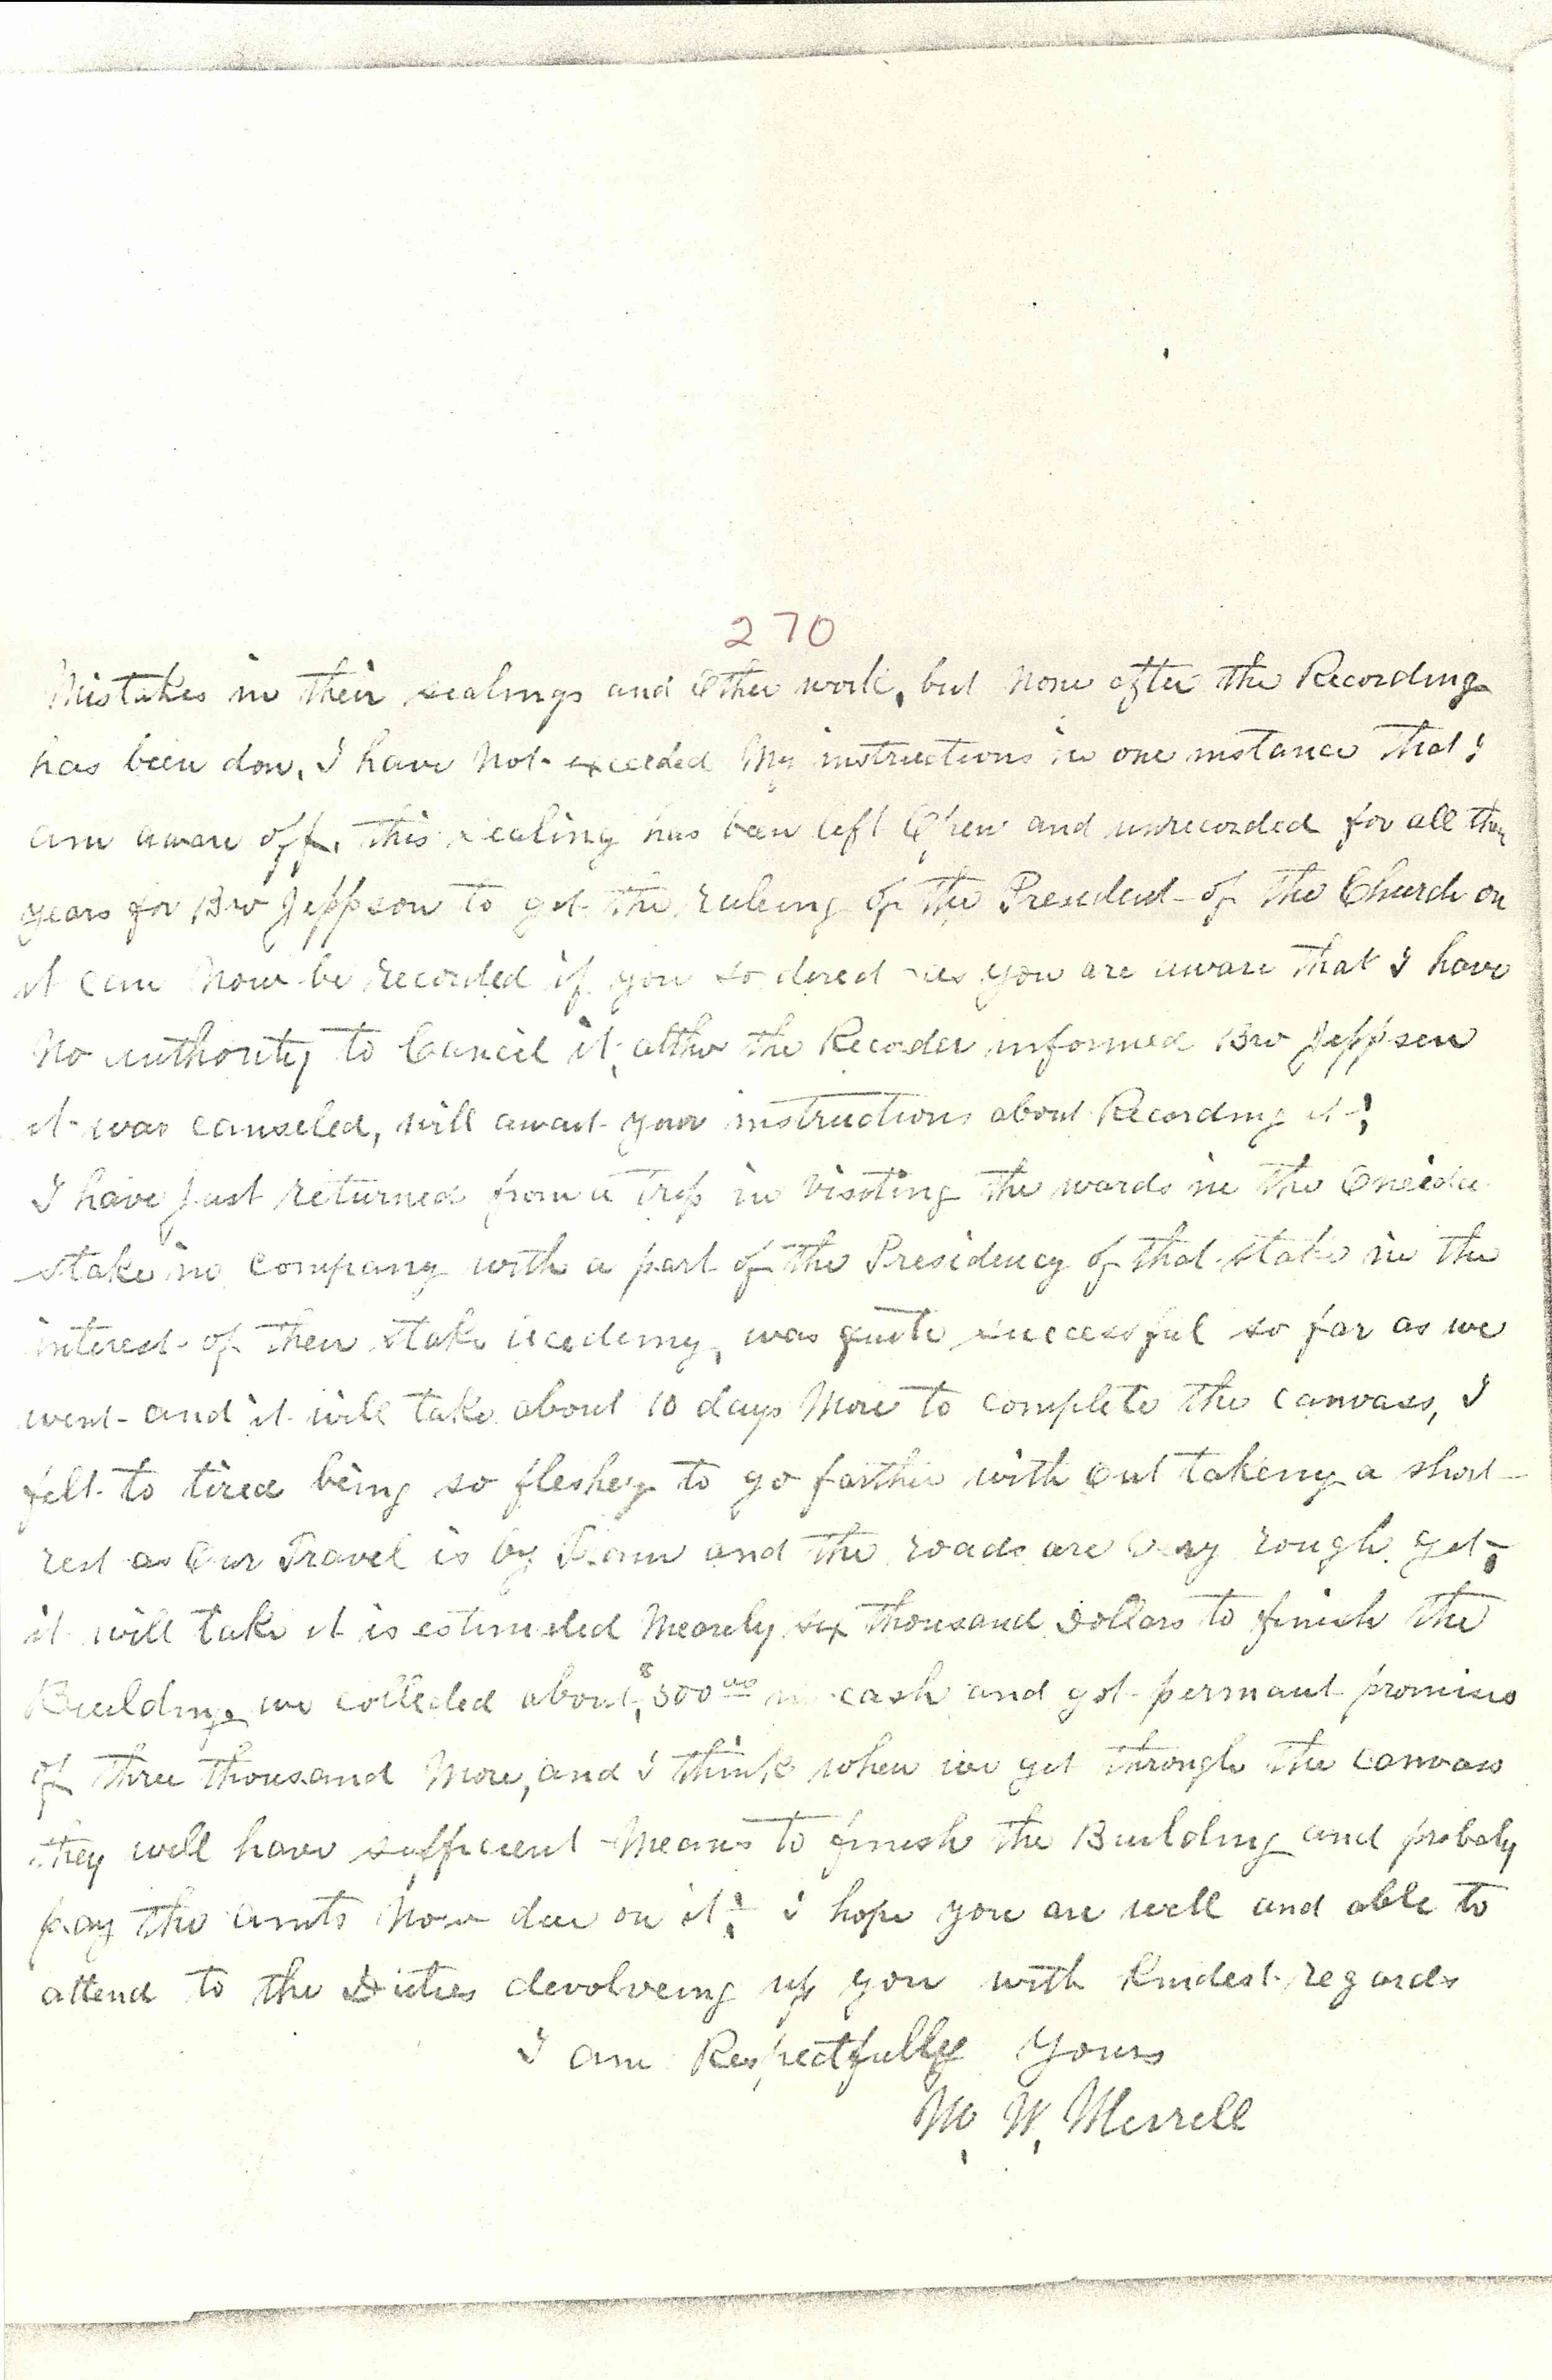 270
Mistakes in their sealings and Other work, but None after the Recording
has been don, I have Not exceeded My instructions in one instance that I
am aware off, this sealing has been left Open and unrecorded for all these
years for Bro Jeppson to get the ruleing of the President of the Church on
it can Now be recorded if you so direct as you are aware that I have
No authority to Cancil it, altho the Recorder informed Bro Jeppsen
it was canseled, will await your instructions about Recording it;
I have just returned from a Trip in Vissting the wards in the Oneida
stake in company with a part of the Presidency of that stake in the
interest of their stake academy, was quite successful so far as we
went and it will take about 10 days More to complete the canvass, I
felt to tired being so fleshey to go farther with out takeing a short
rest as Our Travel is by Team and the roads are Very rough yet,
it will take it is estimated Nearely six thousand Dollars to finish the
Building we collected about $300 00 in cash and got permant promises
of three thousand More, and I think when we get through the canvass
they will have sufficient Means to finish the Building and probaly
pay the amts Now due on it; I hope you are well and able to
attend to the Duties devolveing up you with Kindest regards
I am Respectfully Yours
M. W. Merrell